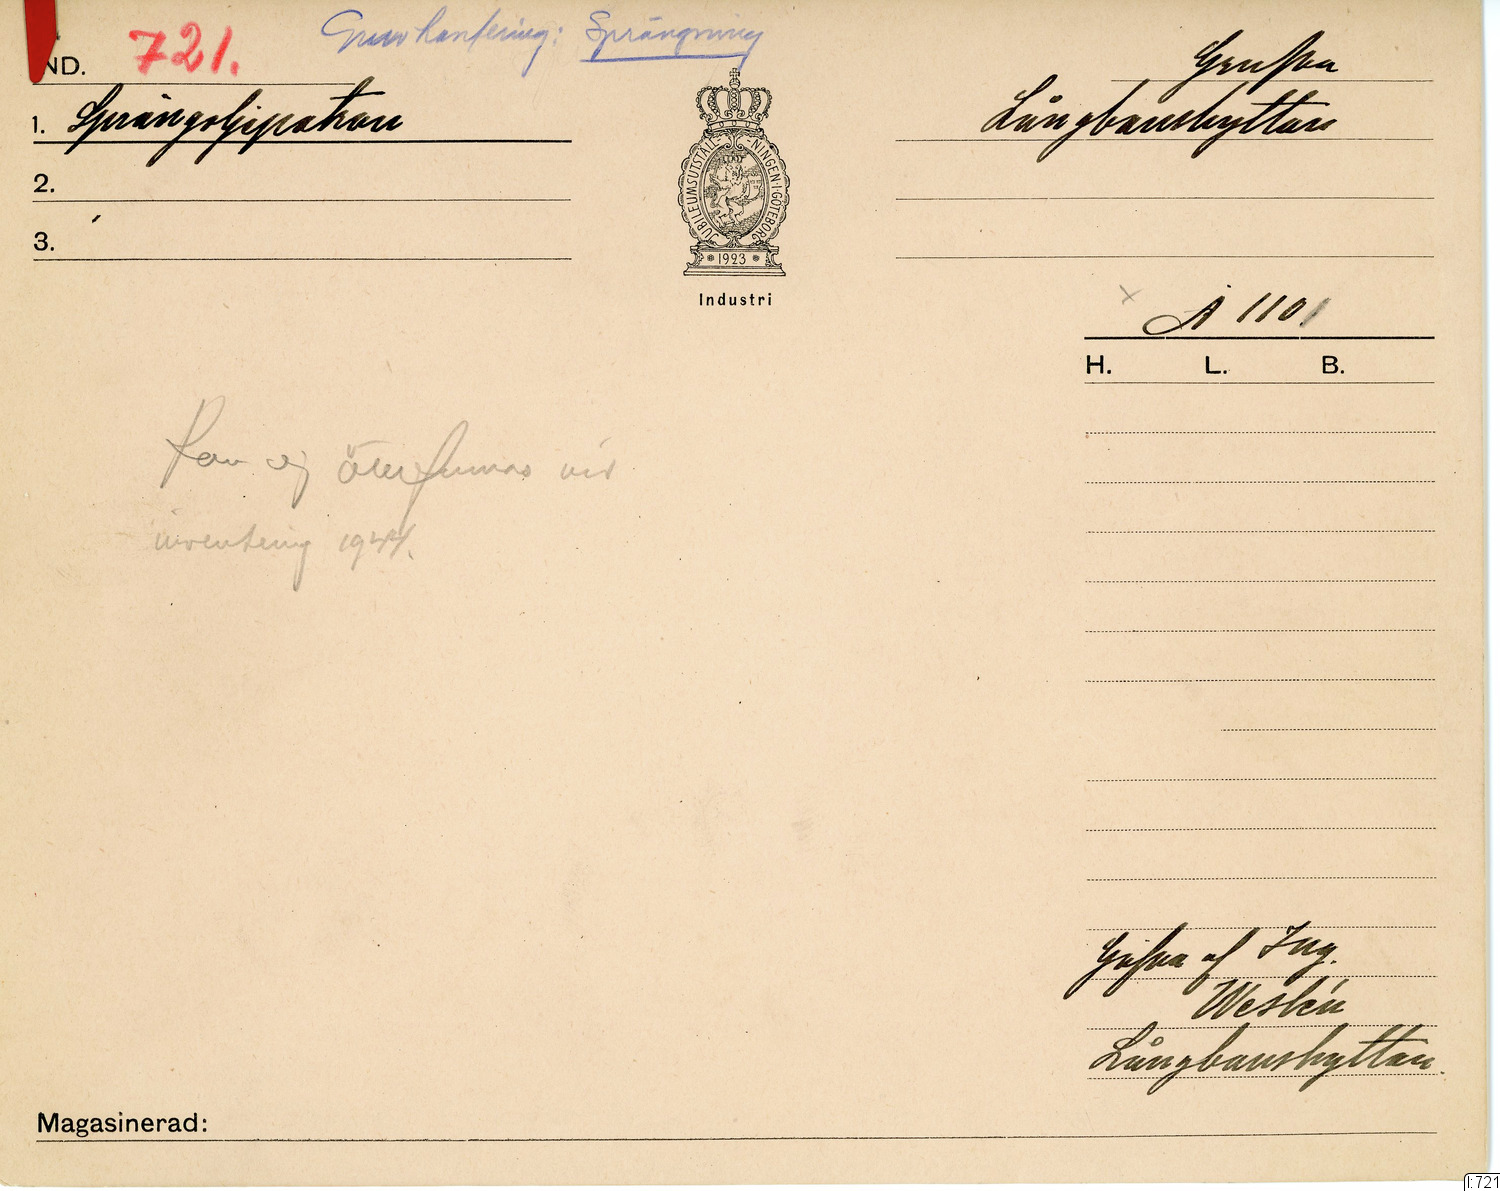 Gruvhantering: Sprängning
ND. 721.
1. Sprängoljepatron
2.
3.
JUBILEUMSUTSTÄLLNINGEN I GÖTEBORG
1923
Industri
Grufva
Långbanshyttan
x A 1101
H. L. B.
Kan ej återfinnas vid
inventering 1944.
Gåfva af Ing.
Westén
Långbanshyttan.
Magasinerad:
I:721